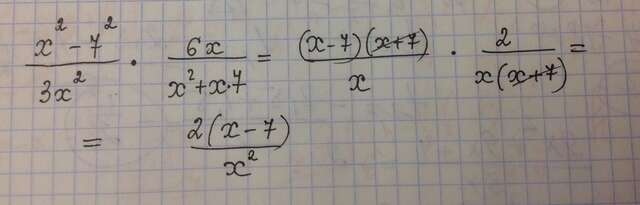 (x² - 7²)/(3x²) · 6x/(x² + x·7) = ((x-7)(x+7))/x · 2/(x(x+7)) =
= (2(x-7))/x²